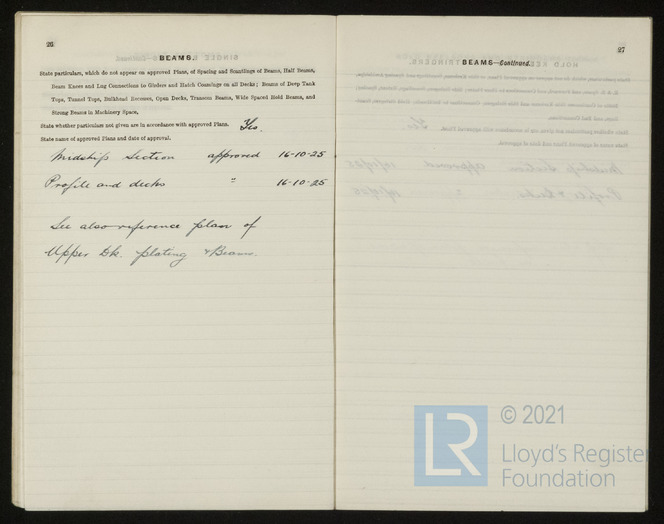 26
BEAMS.
State particulars, which do not appear on approved Plans, of Spacing and Scantlings of Beams, Half Beams,
Beam Knees and Lug Connections to Girders and Hatch Coamings on all Decks; Beams of Deep Tank
Tops, Tunnel Tops, Bulkhead Recesses, Open Decks, Transom Beams, Wide Spaced Hold Beams, and
Strong Beams in Machinery Space,
State whether particulars not given are in accordance with approved Plans. Yes.
State name of approved Plans and date of approval.
Midship Section approved 16-10-25
Profile and decks " 16-10-25
See also reference plan of
Upper Dk. plating & Beams.
27
BEAMS—Continued.
LR
© 2021
Lloyd's Register
Foundation